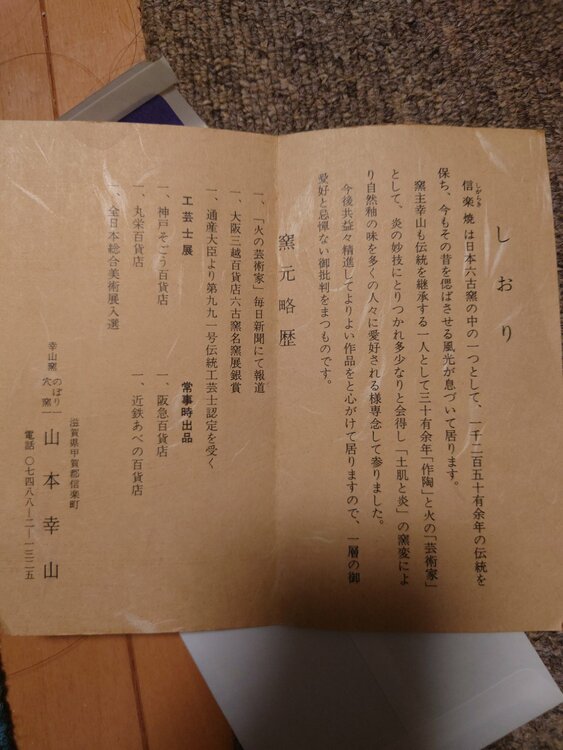 しおり
信楽焼は日本六古窯の中の一つとして、一千二百五十有余年の伝統を
しがらき
保ち、今もその昔を偲ばさせる風光が息づいて居ります。
窯主幸山も伝統を継承する一人として三十有余年「作陶」と火の「芸術家」
として、炎の妙技にとりつかれ多少なりと会得し「土肌と炎」の窯変によ
り自然釉の味を多くの人々に愛好される様専念して参りました。
今後共益々精進してよりよい作品をと心がけて居りますので、一層の御
愛好と忌憚ない御批判をまつものです。
窯元略歴
一、「火の芸術家」毎日新聞にて報道
一、大阪三越百貨店六古窯名窯展銀賞
一、通産大臣より第九九一号伝統工芸士認定を受く
工芸士展 常事時出品
一、神戸そごう百貨店 一、阪急百貨店
一、丸栄百貨店 一、近鉄あべの百貨店
一、全日本総合美術展入選
滋賀県甲賀郡信楽町
幸山窯 のぼり 穴窯 山本幸山
電話 〇七四八八―二―一三二五